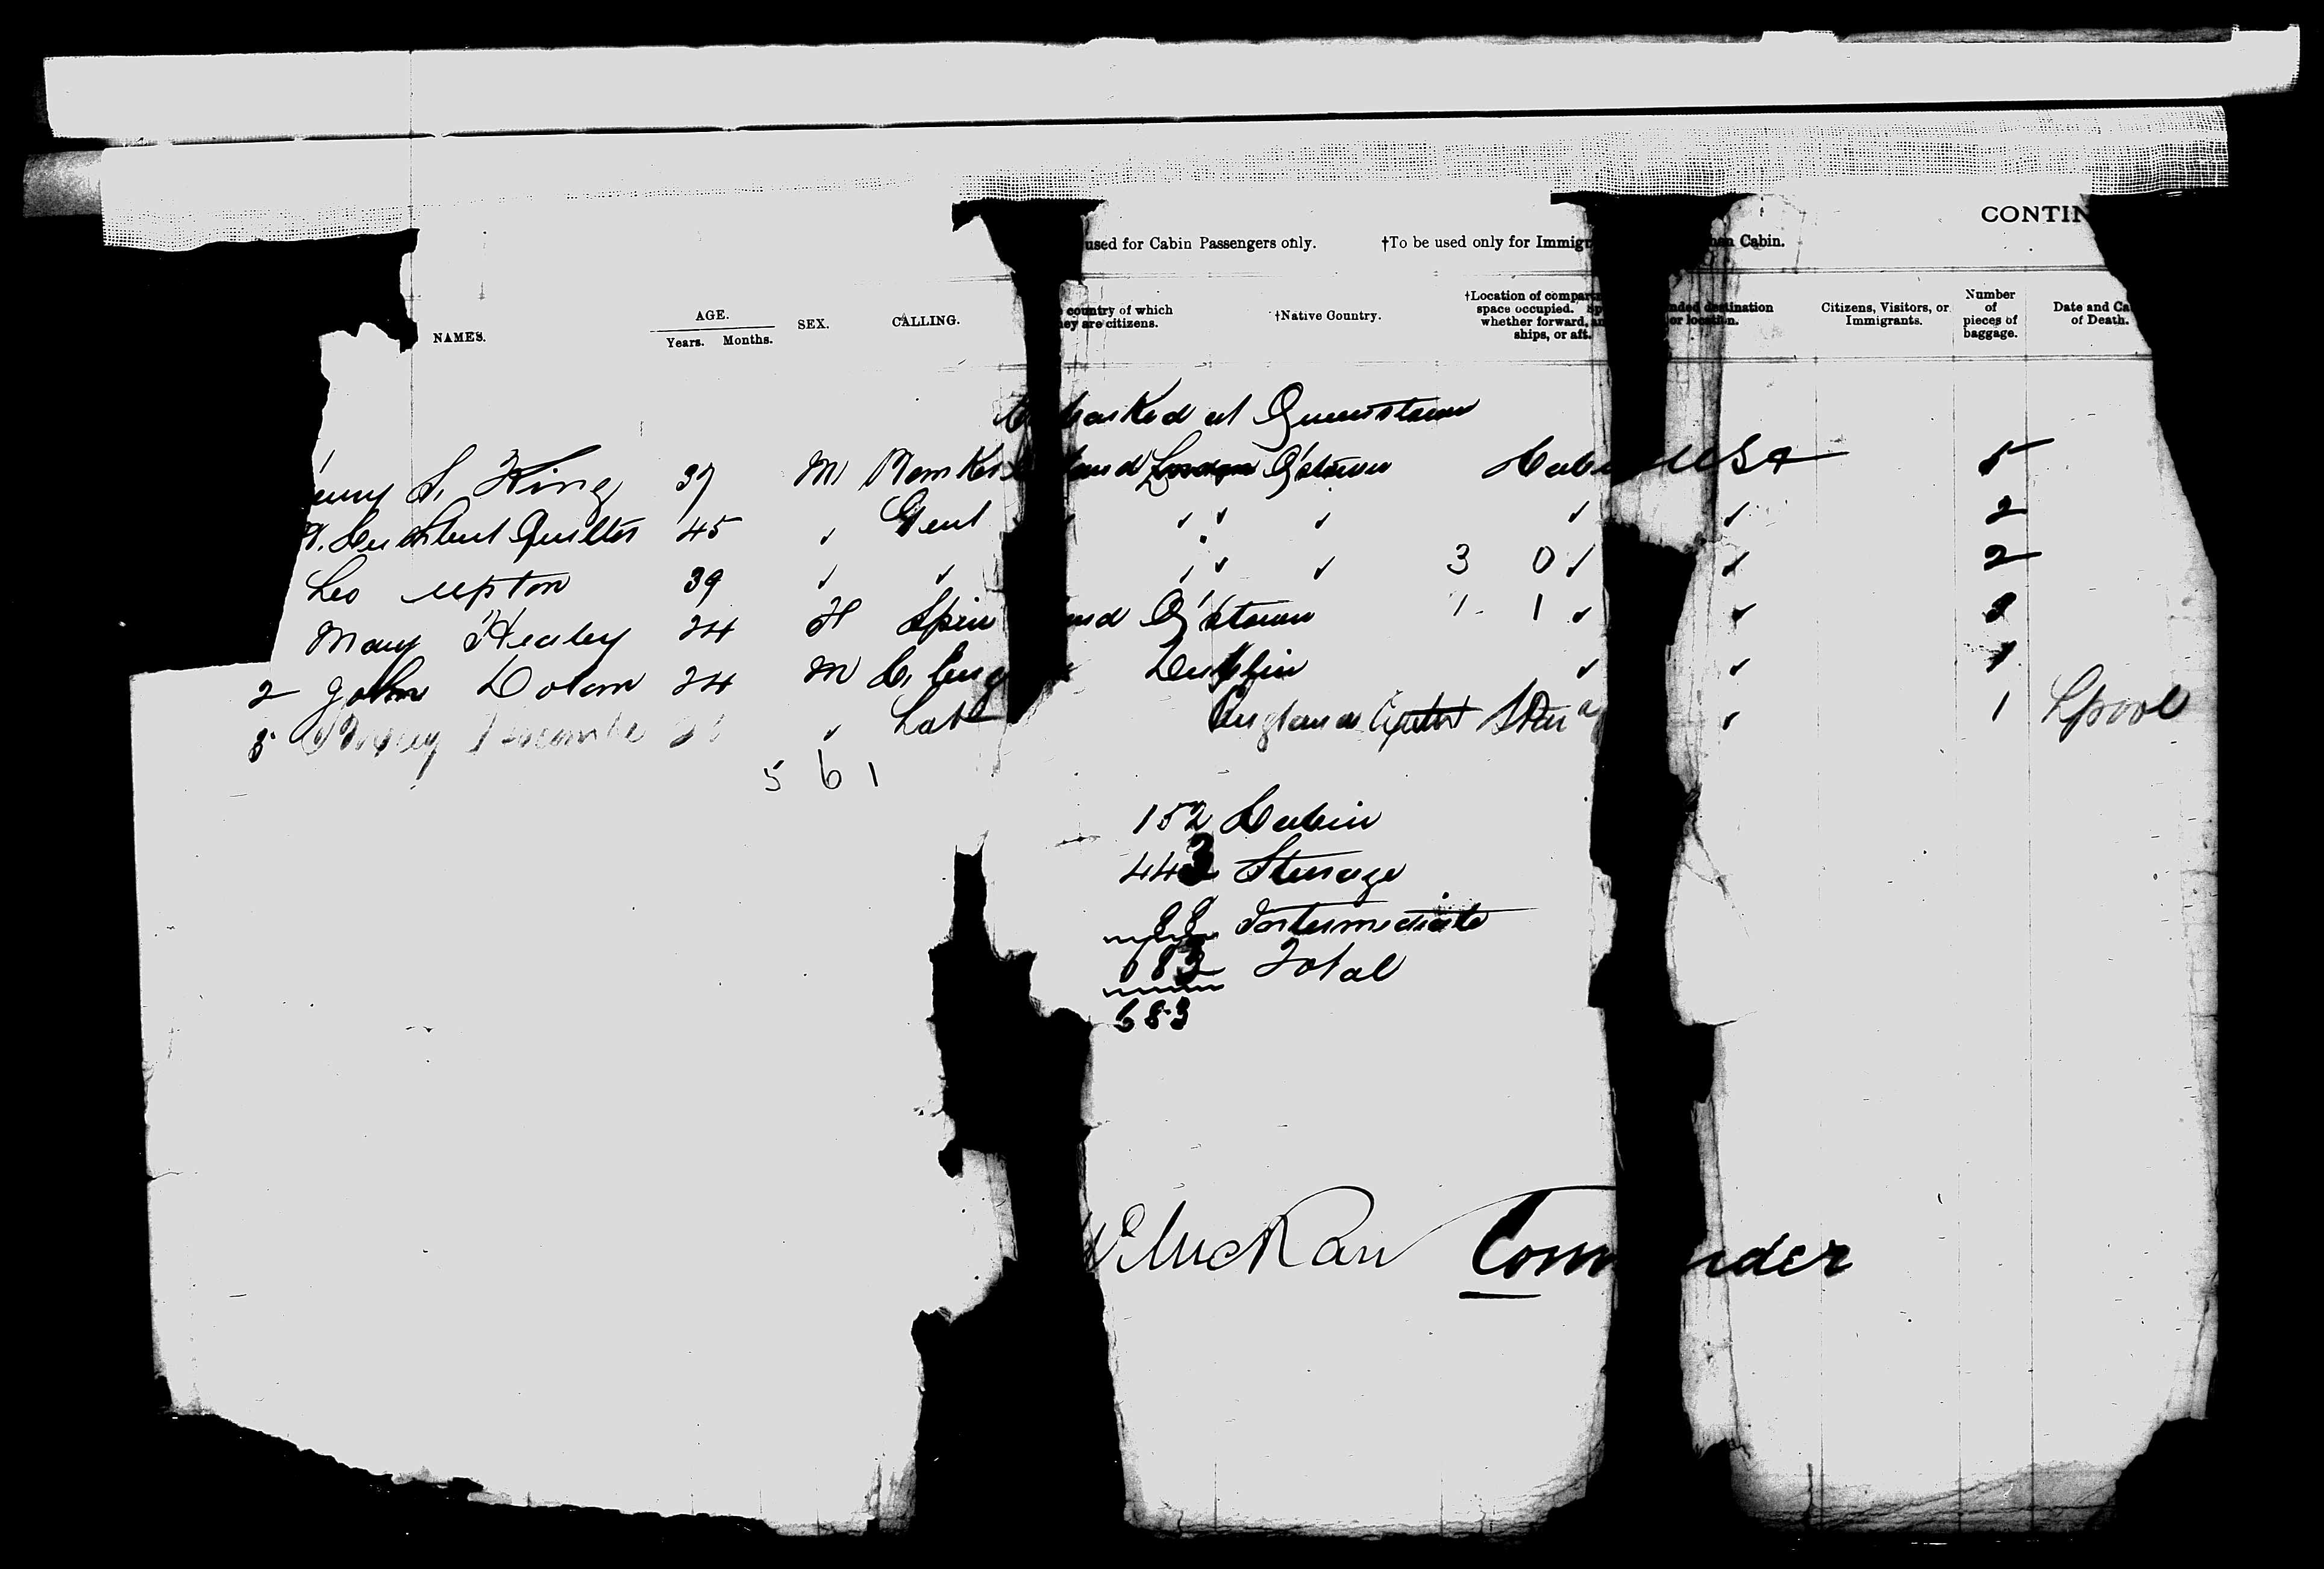 CONTIN
used for Cabin Passengers only. †To be used only for Immigr han Cabin.
NAMES. AGE. Years. Months. SEX. CALLING. country of which hey are citizens. †Native Country. †Location of compar space occupied. Sp whether forward, ships, or aft. nded destination or location. Citizens, Visitors, or Immigrants. Number of pieces of baggage. Date and Ca of Death.
barked at Queenstown
S. King 37 M London Q'stown USA 5
Quilter 45 " Gent " " " " " 2
Leo Upton 39 " " " " " 3 0 " " 2
Mary Healey 24 F Spin and Q'stown 1 1 " "
2 John Dolan 24 M C. Eng Dublin " " 1
Lab England " 1 Lpool
5 6 1
152 Cabin
443 Steerage
88 Intermediate
683 Total
683
Com nder